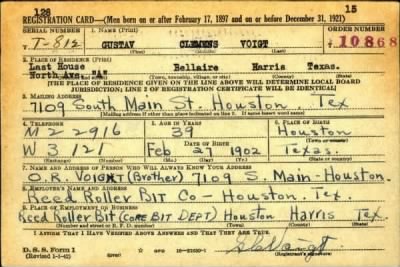 128 15
REGISTRATION CARD—(Men born on or after February 17, 1897 and on or before December 31, 1921)
SERIAL NUMBER 1. NAME (Print) ORDER NUMBER
T-812 GUSTAV CLEMENS VOIGT 10868
(First) (Middle) (Last)
2. PLACE OF RESIDENCE (Print)
Last House Bellaire Harris Texas.
North Ave. "A"
(Number and street) (Town, township, village, or city) (County) (State)
[THE PLACE OF RESIDENCE GIVEN ON THE LINE ABOVE WILL DETERMINE LOCAL BOARD
JURISDICTION; LINE 2 OF REGISTRATION CERTIFICATE WILL BE IDENTICAL]
3. MAILING ADDRESS
7109 South Main St. Houston, Tex
[Mailing address if other than place indicated on line 2. If same insert word same]
4. TELEPHONE 5. AGE IN YEARS 6. PLACE OF BIRTH
M 2 2916 39 Houston
DATE OF BIRTH (Town or county)
W 3 121 Feb 27 1902 Texas.
(Exchange) (Number) (Mo.) (Day) (Yr.) (State or country)
7. NAME AND ADDRESS OF PERSON WHO WILL ALWAYS KNOW YOUR ADDRESS
O.R. VOIGHT (Brother) 7109 S. Main-Houston.
8. EMPLOYER'S NAME AND ADDRESS
Reed Roller BIT Co — Houston, Tex.
9. PLACE OF EMPLOYMENT OR BUSINESS
Reed Roller BIT (CORE BIT DEPT) Houston Harris Tex
(Number and street or R. F. D. number) (Town) (County) (State)
I AFFIRM THAT I HAVE VERIFIED ABOVE ANSWERS AND THAT THEY ARE TRUE.
D. S. S. Form 1
(Revised 1-1-42) (over)
(Registrant's signature)